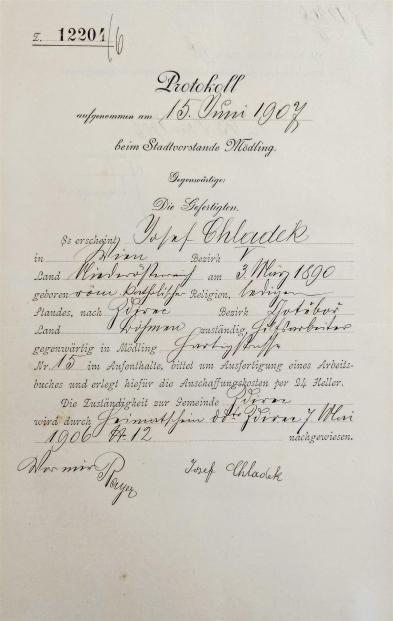 Z. 12201/6
Protokoll
aufgenommen am 15. Juni 1907
beim Stadtvorstande Mödling.
Gegenwärtige:
Die Gefertigten.
Es erscheint Josef Chladek
in Wien Bezirk V
Land Niederösterreich am 3. März 1890
geboren röm. katholische Religion, ledigen
Standes, nach Bezirk Chotěboř
Land Böhmen zuständig, Hilfsarbeiter
gegenwärtig in Mödling Hartigstrasse
Nr. 15 im Aufenthalte, bittet um Ausfertigung eines Arbeits-
buches und erlegt hiefür die Anschaffungskosten per 24 Heller.
Die Zuständigkeit zur Gemeinde
wird durch Heimatschein 7 Mai
1906 12 nachgewiesen.
Vor mir Josef Chladek